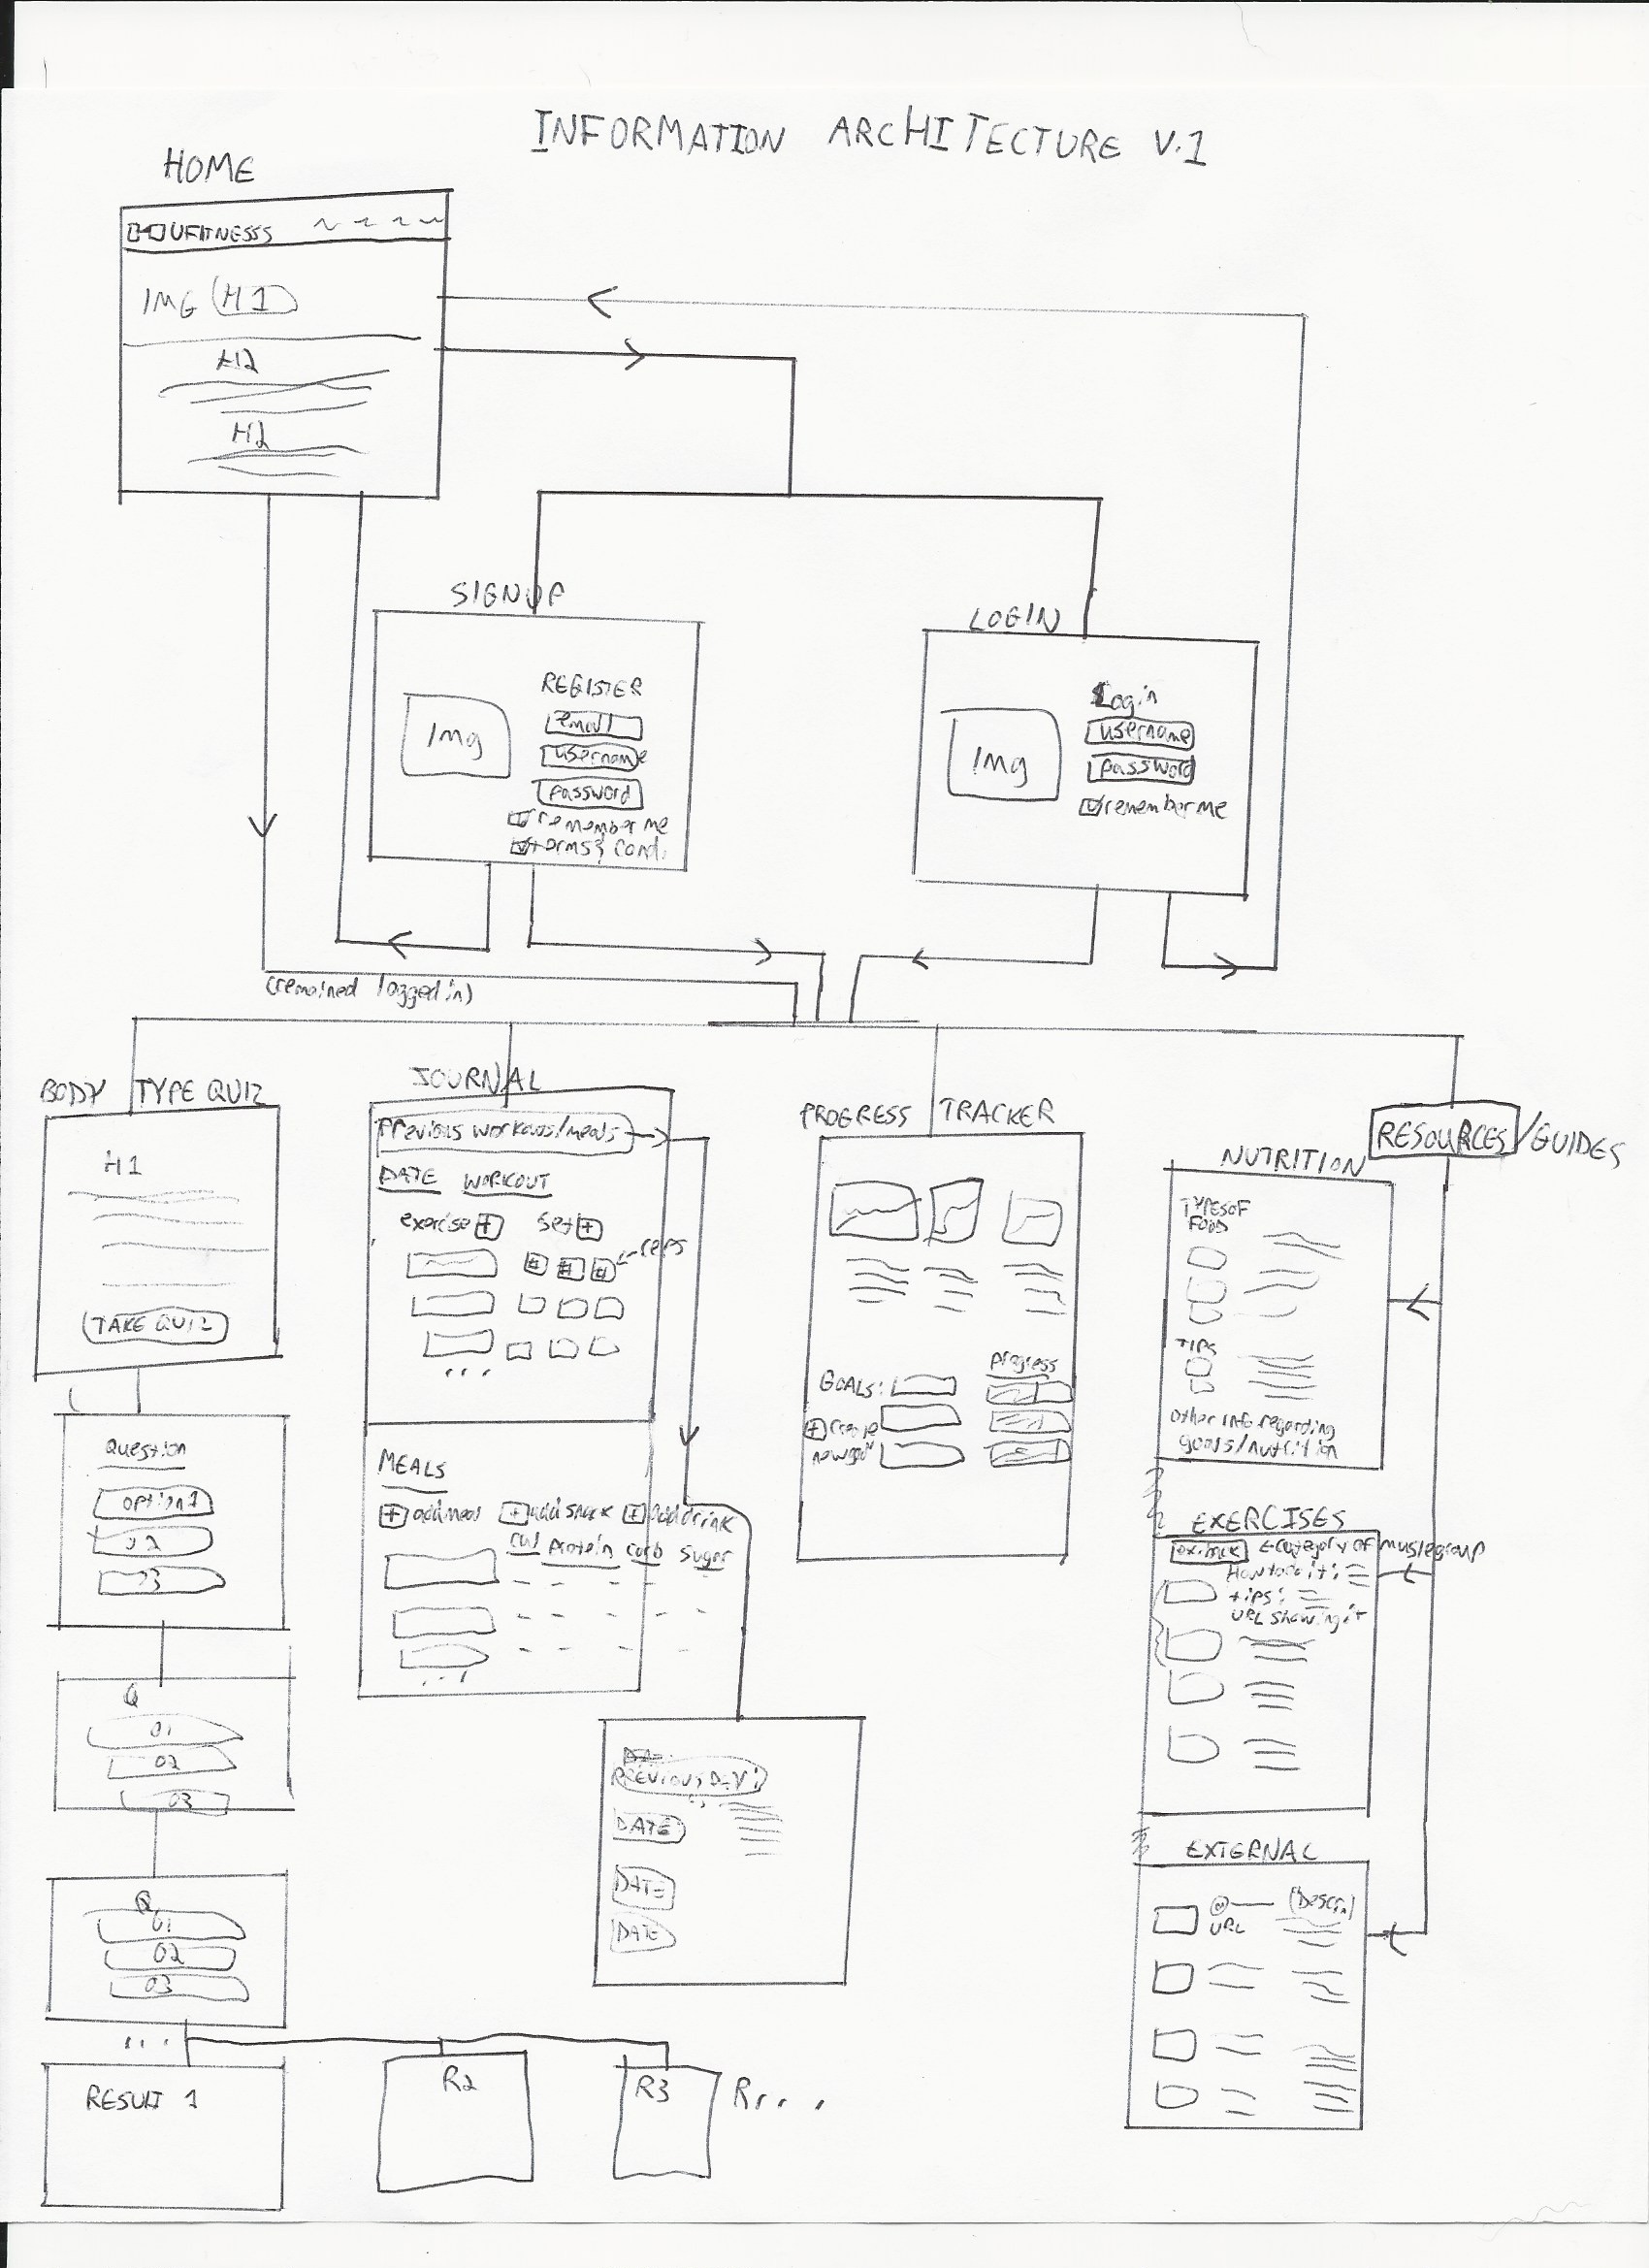 INFORMATION ARCHITECTURE V.1
HOME
UFITNESSS
IMG (H1)
H2
H2
SIGNUP
REGISTER
email
username
password
Img
remember me
terms & cond.
LOGIN
Login
username
password
Img
remember me
(remained logged in)
BODY TYPE QUIZ
H1
TAKE QUIZ
Question
option 1
02
03
Q
01
02
03
Q
01
02
03
...
RESULT 1
R2
R3
R...
JOURNAL
Previous workouts/meals
DATE WORKOUT
exercise + set +
# # # ← reps
...
MEALS
+ add meal + add snack + add drink
cal protein carb sugar
...
PREVIOUS DAY
DATE
DATE
DATE
PROGRESS TRACKER
Progress
GOALS:
+ create
new goal
RESOURCES/GUIDES
NUTRITION
TYPES OF
FOOD
TIPS
Other info regarding
goals/nutrition
EXERCISES
ex: back ← category of musclegroup
How to do it:
tips:
URL showing it
EXTERNAL
URL